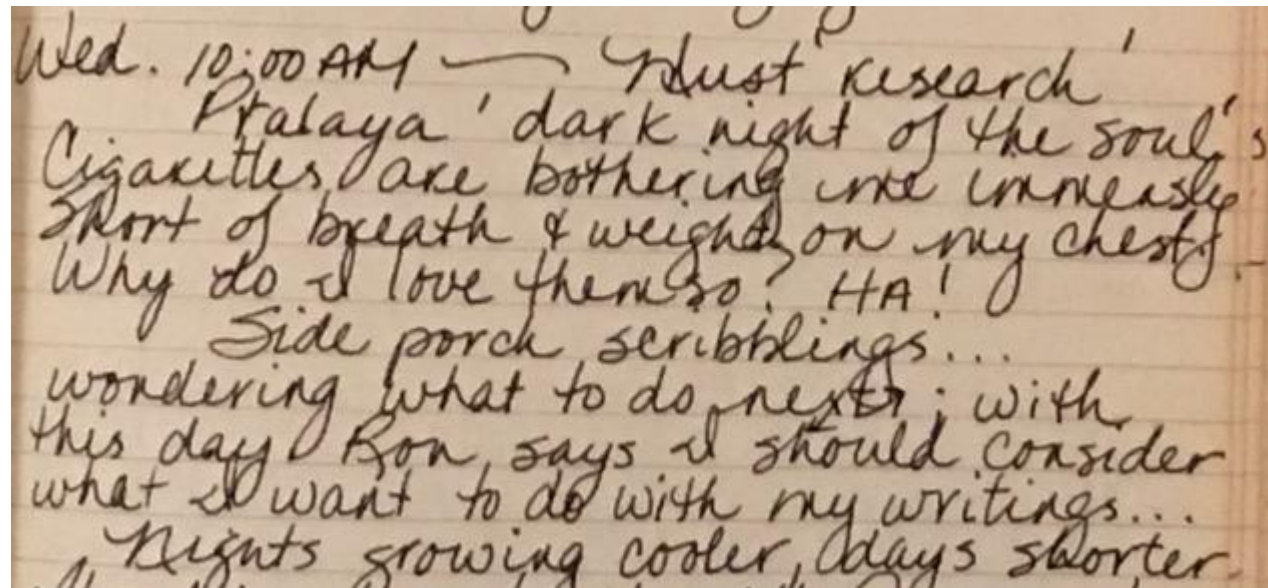 Wed. 10:00 AM — Must research '
Pralaya 'dark night of the soul's'
Cigarettes are bothering me immensly
Short of breath & weight on my chest.
Why do I love them so? HA!
Side porch scribblings...
wondering what to do next; with
this day. Ron says I should consider
what I want to do with my writings...
Nights growing cooler, days shorter